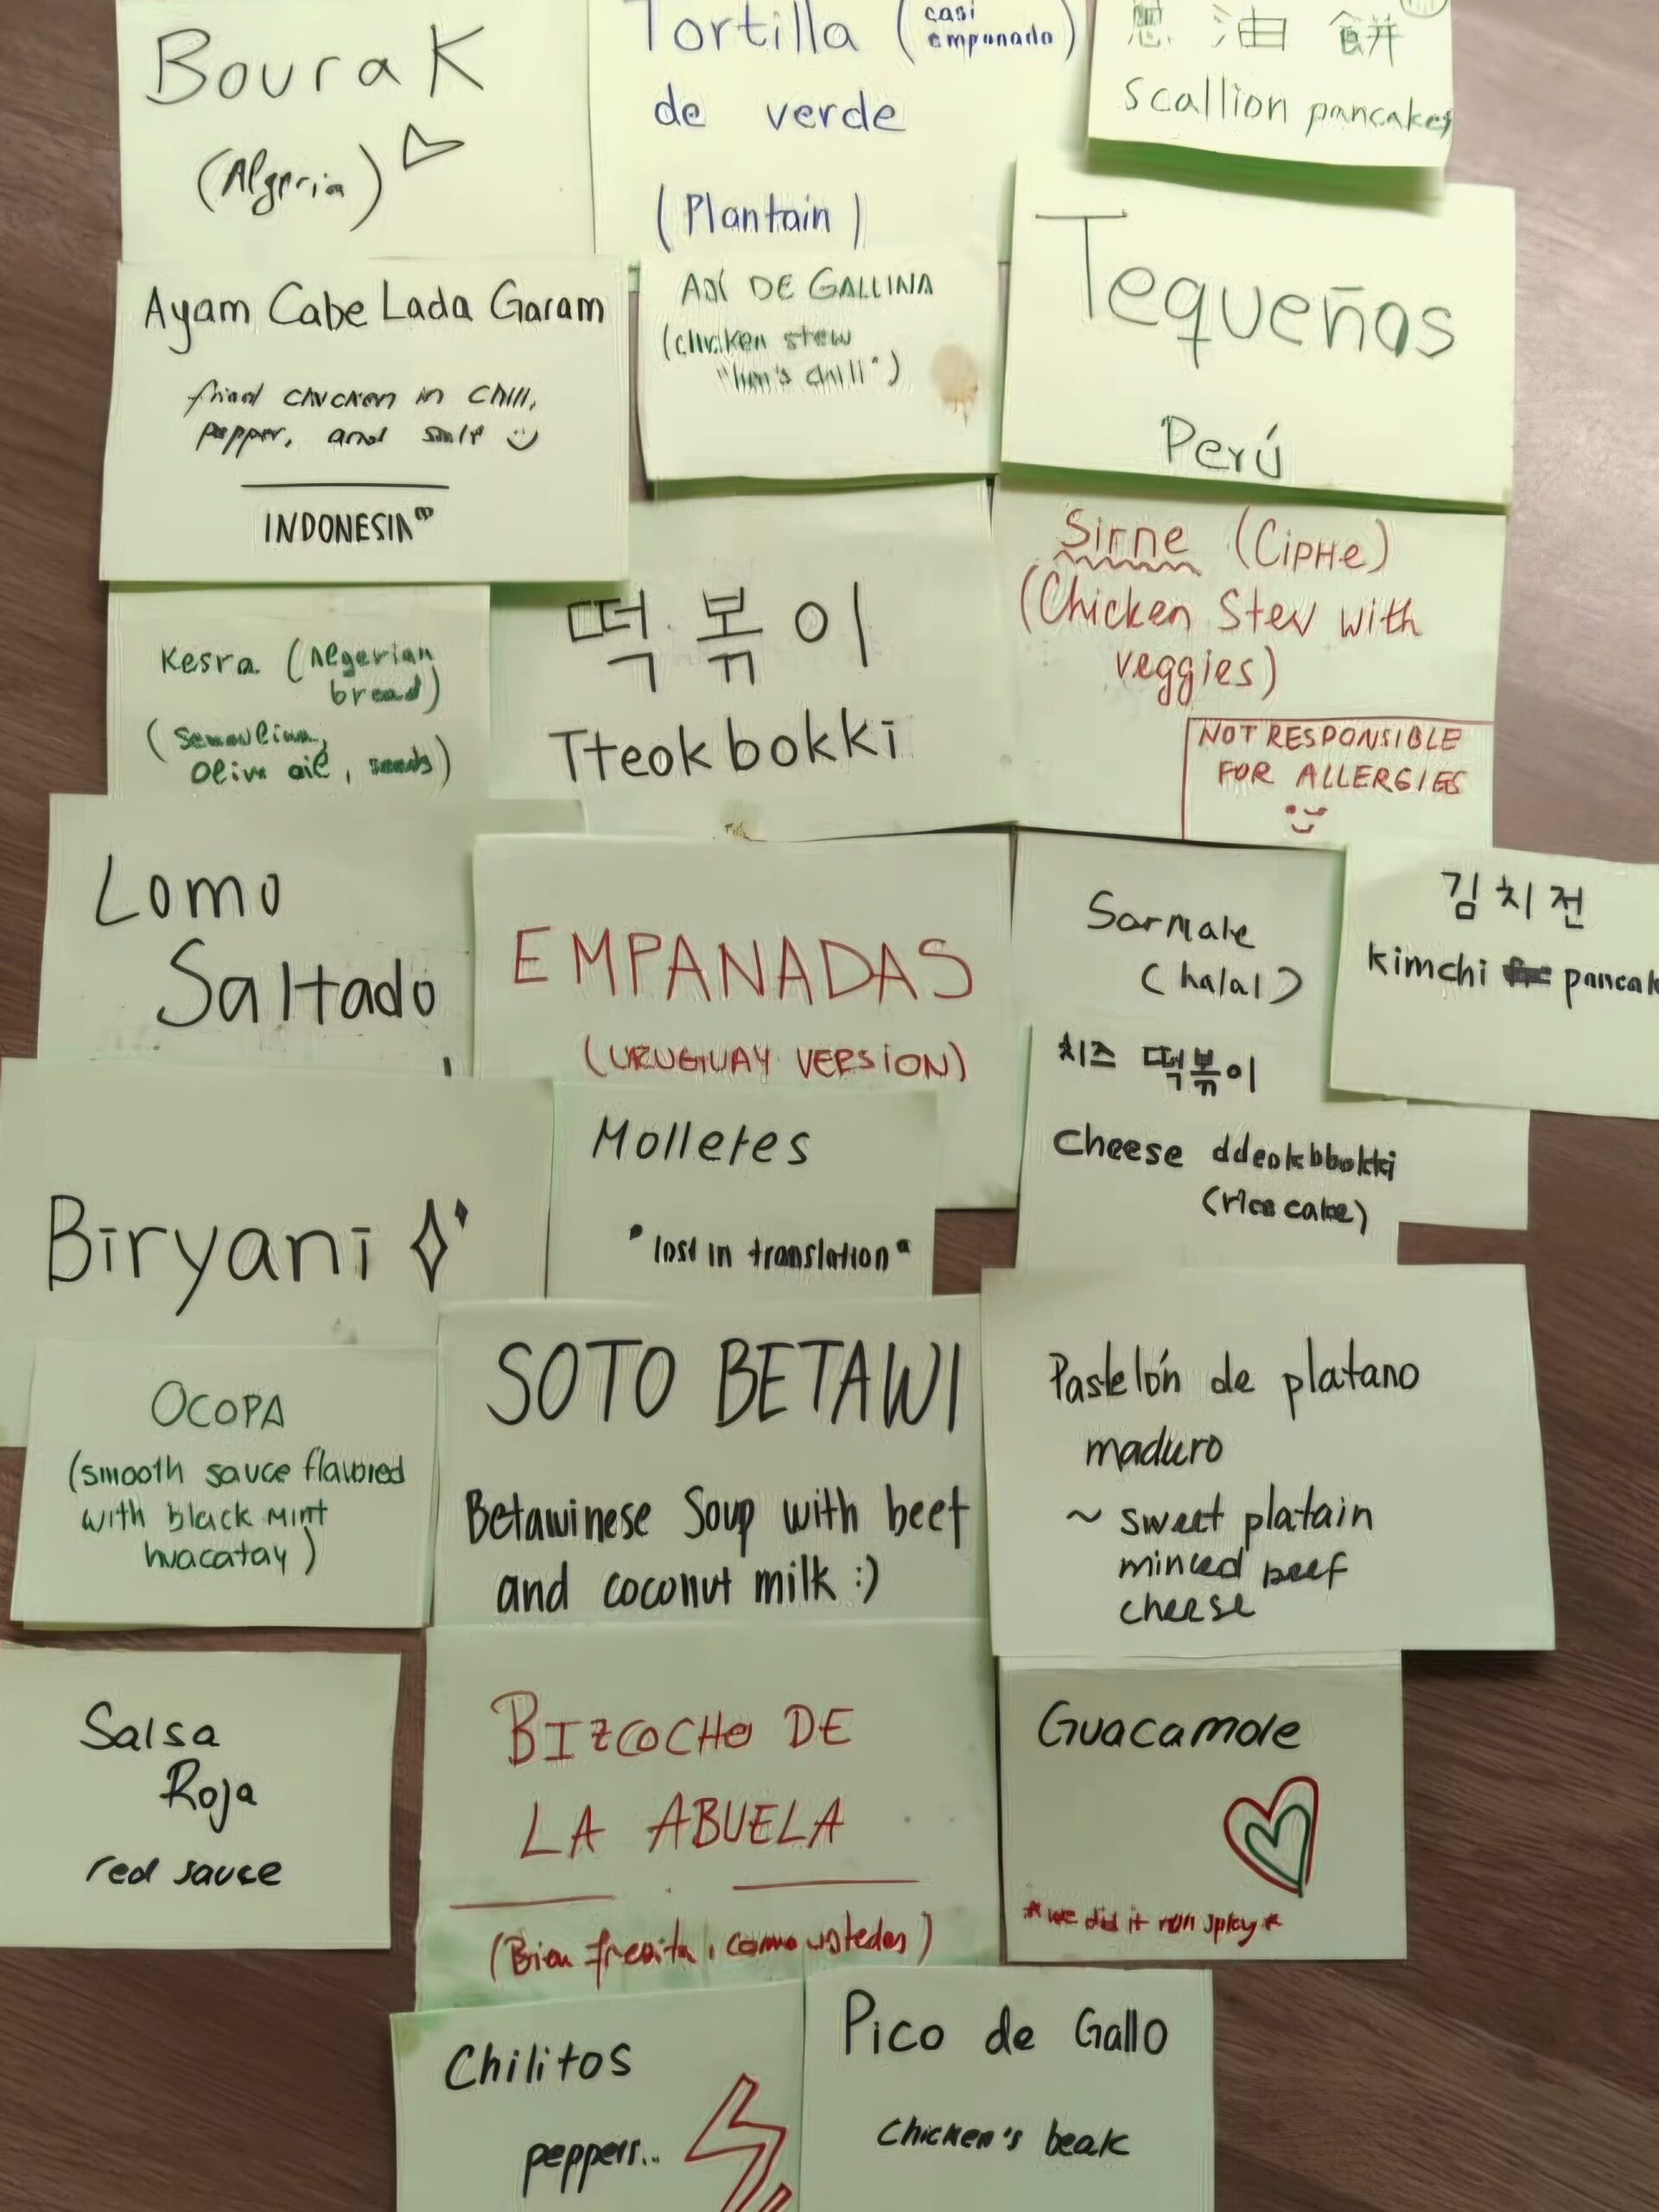 Bourak
(Algeria)
Tortilla (casi
empanada)
de verde
(Plantain)
油 餅
Scallion pancakes
Ayam Cabe Lada Garam
fried chicken in chili,
pepper, and salt
INDONESIA
AJÍ DE GALLINA
(chicken stew
"hen's chili")
Tequeños
Perú
Kesra (Algerian
bread)
(Semoulina,
Olive oil, seeds)
떡볶이
Tteokbokki
Sirne (CiPHe)
(Chicken Stev with
veggies)
NOT RESPONSIBLE
FOR ALLERGIES
Lomo
Saltado
EMPANADAS
(URUGUAY VERSION)
Sarmale
(halal)
김치전
kimchi pancak
치즈 떡볶이
Cheese ddeokbbokki
(rice cake)
Biryani
Molletes
"lost in translation"
OCOPA
(smooth sauce flavored
with black mint
huacatay)
SOTO BETAWI
Betawinese Soup with beef
and coconut milk :)
Pastelón de platano
maduro
~ sweet platain
minced beef
cheese
Salsa
Roja
red sauce
BIZCOCHO DE
LA ABUELA
(Bien fresita, como ustedes)
Guacamole
*we did it non spicy*
Chilitos
peppers..
Pico de Gallo
Chicken's beak